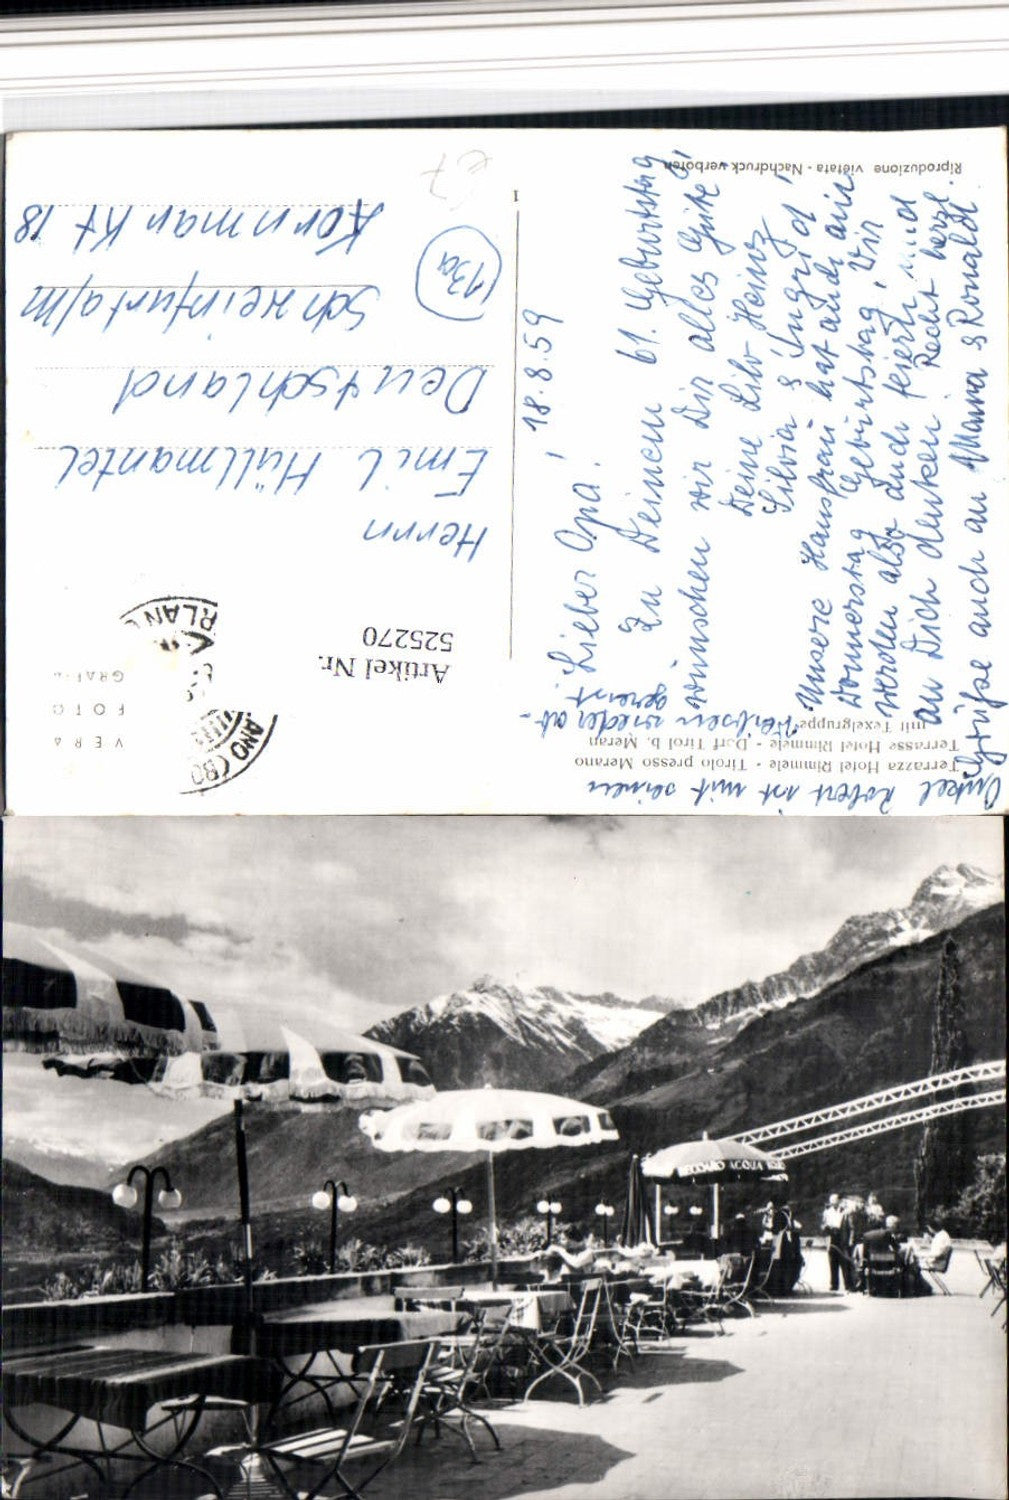 Riproduzione vietata - Nachdruck verboten
1
18.8.59
Lieber Opa!
Zu Deinem 61. Geburtstag
wünschen wir Dir alles Gute,
Deine Lilo Heinz
Silvia & Ingrid,
Unsere Hausfrau hat auch am
Donnerstag Geburtstag, Wir
werden also auch feiern und
an Dich denken. Recht herzl.
Grüße auch an Mama & Ronald.
Onkel Robert ist mit seinen
wieder ab-
gereist.
Terrazza Hotel Rimmele - Tirolo presso Merano
Terrasse Hotel Rimmele - Dorf Tirol b. Meran
mit Texelgruppe
VERA
FOTO
GRAFIA
ANO (BO
RLAN
Artikel Nr.
525270
Herrn
Emil Hüllmantel
Deutschland
Schweinfurt a/M
Kornmarkt 18
13a
€7
ACQUA